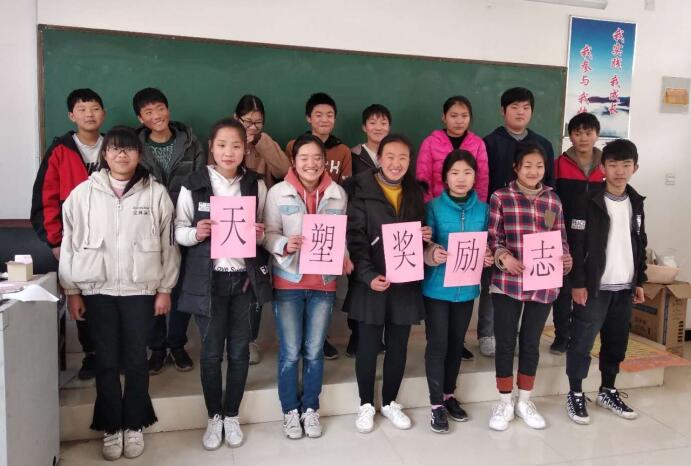 天塑奖励志
我实践 我成长
我参与 我
Love